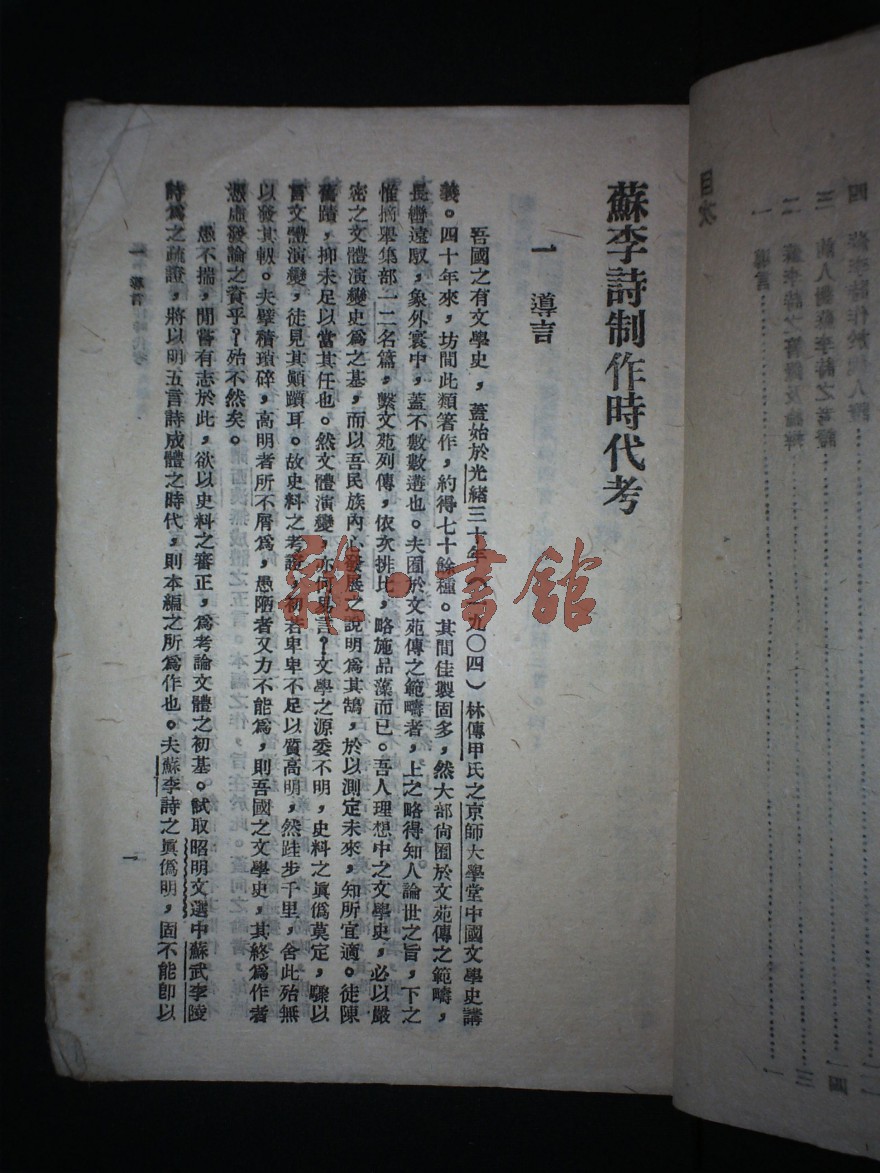 蘇李詩制作時代考
一 導言
吾國之有文學史,蓋始於光緒三十年(一九〇四)林傳甲氏之京師大學堂中國文學史講
義。四十年來,坊間此類著作,約得七十餘種。其間佳製固多,然大部尙囿於文苑傳之範疇,
長轡遠馭,象外寰中,蓋不數數遘也。夫囿於文苑傳之範疇者,上之略得知人論世之旨,下之
惟摘舉集部一二名篇,繫文苑列傳,依次排比,略施品藻而已。吾人理想中之文學史,必以嚴
密之文體演變史爲之基,而以吾民族內心發展之說明爲其鵠,於以測定未來,知所宜適。徒陳
舊蹟,抑未足以當其任也。然文體演變,亦何易言?文學之源委不明,史料之眞僞莫定,驟以
言文體演變,徒見其顚躓耳。故史料之考證,初若卑卑不足以質高明,然跬步千里,舍此殆無
以發其軔。夫襞積瑣碎,高明者所不屑爲,愚陋者又力不能爲,則吾國之文學史,其終爲作者
憑虛發論之資乎?殆不然矣。
愚不揣,閒嘗有志於此,欲以史料之審正,爲考論文體之初基。試取昭明文選中蘇武李陵
詩爲之疏證,將以明五言詩成體之時代,則本編之所爲作也。夫蘇李詩之眞僞明,固不能卽以
一 導言
一
雜·書館
目次
一 導言
二
三
四